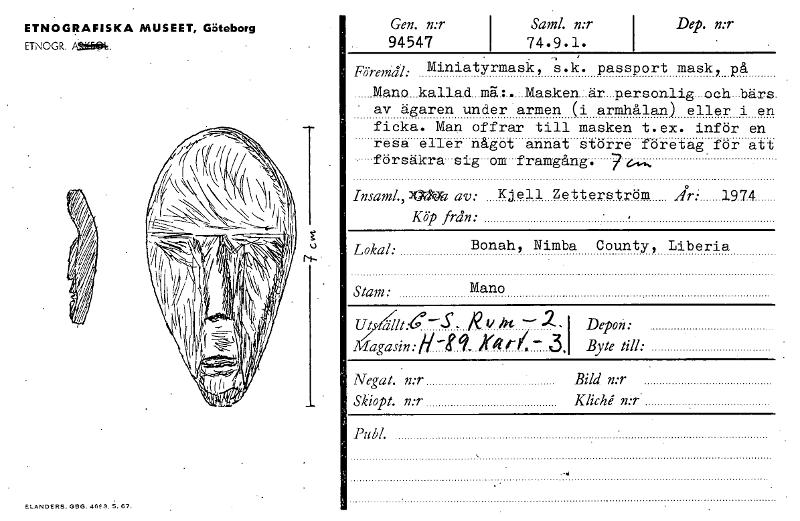 ETNOGRAFISKA MUSEET, Göteborg
ETNOGR. AVDEL.
7 cm
ELANDERS, GBG. 4093, 5. 67.
Gen. n:r Saml. n:r Dep. n:r
94547 74.9.1.
Föremål: Miniatyrmask, s.k. passport mask, på
Mano kallad mã:. Masken är personlig och bärs
av ägaren under armen (i armhålan) eller i en
ficka. Man offrar till masken t.ex. inför en
resa eller något annat större företag för att
försäkra sig om framgång. 7 cm
Insaml., Gåva av: Kjell Zetterström År: 1974
Köp från:
Lokal: Bonah, Nimba County, Liberia
Stam: Mano
Utställt: G-S. Rum-2. Depon:
Magasin: H-89. Kart.-3. Byte till:
Negat. n:r Bild n:r
Skiopt. n:r Kliché n:r
Publ.